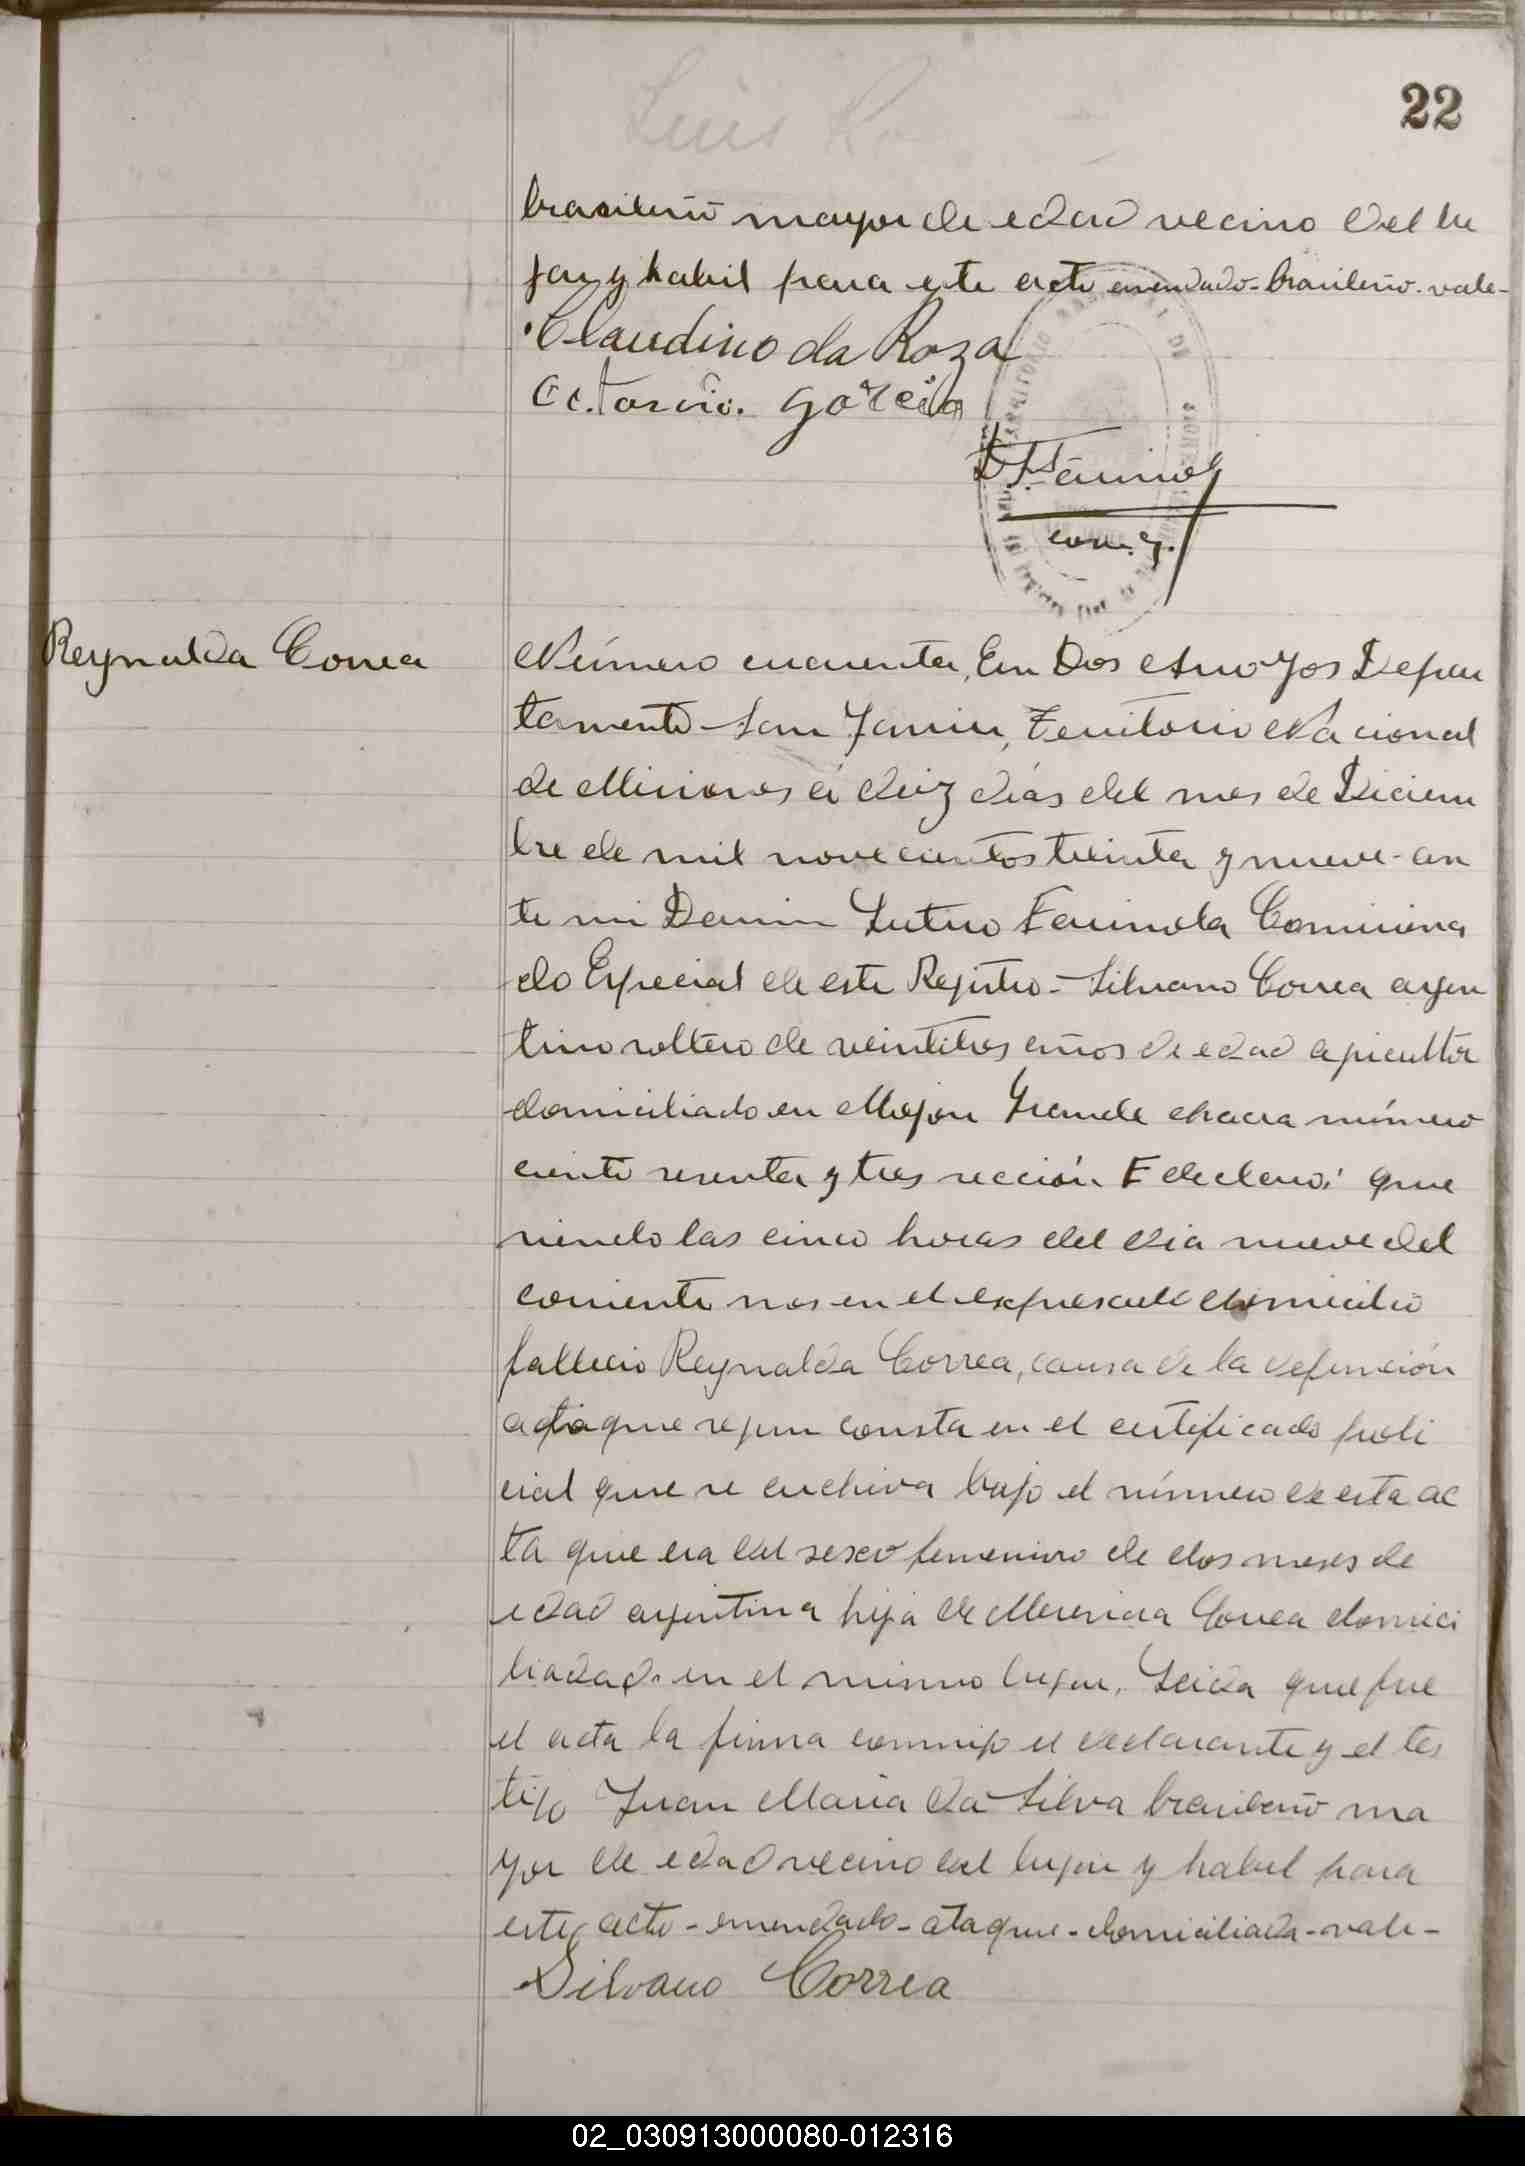 22
brasileño mayor de edad vecino del lu
gar y habil para este acto emendado-brasileño-vale-
Claudino da Roza
Garcia
com. e.
Reynalda Correa
Número cuarenta, En Dos Arroyos Depar
tamento San Javier, Territorio Nacional
de Misiones á diez dias del mes de Diciem
bre de mil novecientos treinta y nueve-an
te mi Comisiona
do Especial de este Registro-Silvano Correa argen
tino soltero de veintitres años de edad agricultor
domiciliado en Mojon Grande chacra número
ciento sesenta y tres sección F declaró: que
siendo las cinco horas del dia nueve del
corriente mes en el expresado domicilio
fallecio Reynalda Correa, causa de la defunción
ataque segun consta en el certificado poli
cial que se archiva bajo el número de esta ac
ta que era del sexo femenino de dos meses de
edad argentina hija de Correa domici
liada en el mismo lugar. Leida que fue
el acta la firma conmigo el declarante y el tes
tigo Juan Maria da Silva brasileño ma
yor de edad vecino del lugar y habil para
este acto-emendado-ataque-domiciliada-vale-
Silvano Correa
02_030913000080-012316